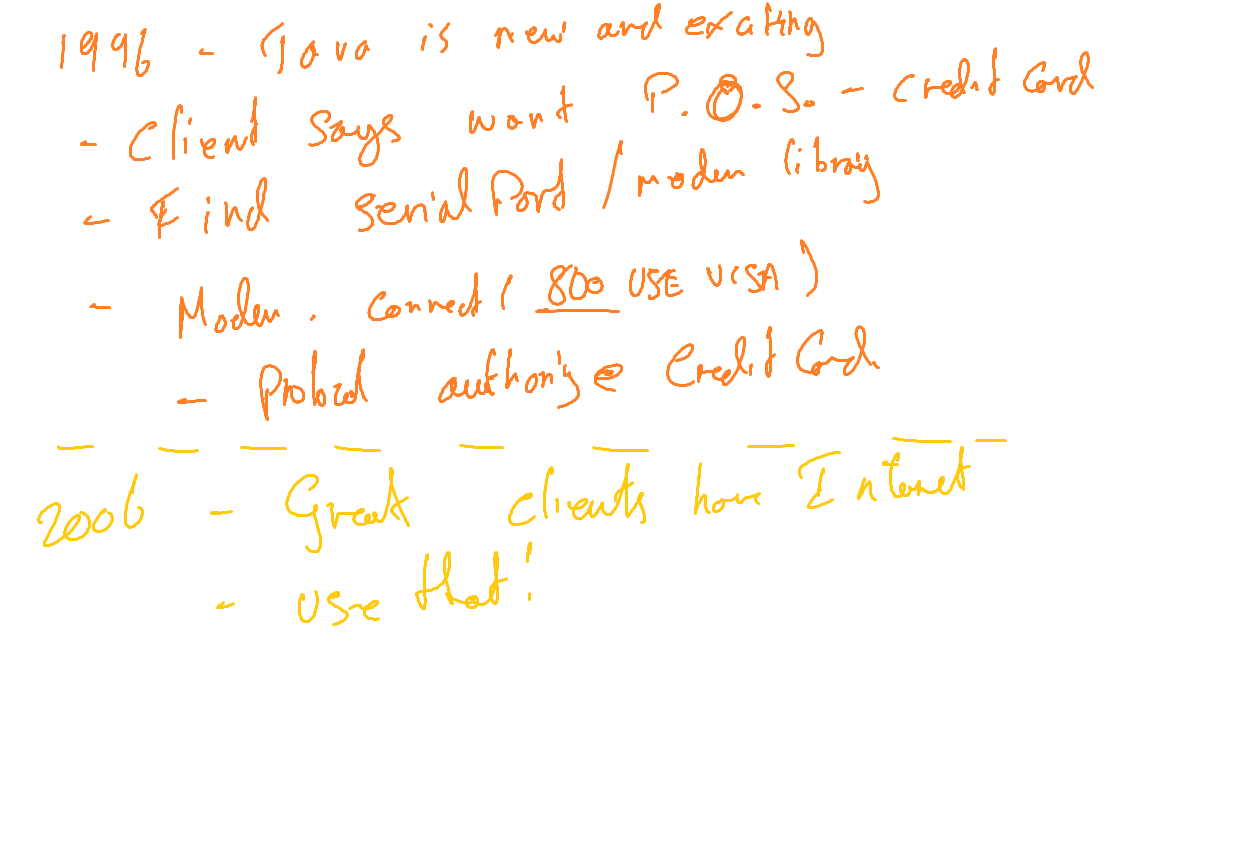 1996 - Java is new and exciting
- Client says want P.O.S. - credit card
- Find serial Port / modem library
- Modem . connect ( 800 USE VISA )
- Protocol authorize Credit Card
2006 - Great clients have Internet
- use that!